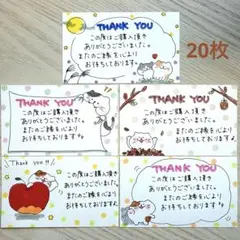 20枚
THANK YOU
この度はご購入頂き
ありがとうございました。
またのご縁を心より
お待ちしております。
THANK YOU
この度はご購入頂き
ありがとうございました。
またのご縁を心より
お待ちしております。
THANK YOU
この度はご購入頂き
ありがとうございました。
またのご縁を心より
お待ちしております。
Thank you!!
この度はご購入頂き
ありがとうございました。
またのご縁を心より
お待ちしております。
THANK YOU
この度はご購入頂き
ありがとうございました。
またのご縁を心より
お待ちしております。